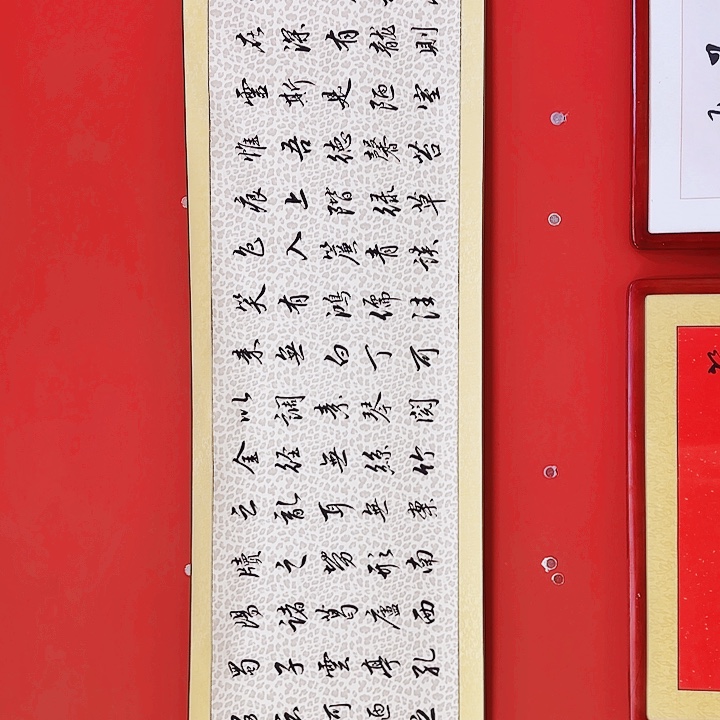 在深有龍則
靈斯是陋室
惟吾德馨苔
痕上階綠草
色入簾青談
笑有鴻儒往
來無白丁可
以調素琴閱
金經無絲竹
之亂耳無案
牘之勞形南
陽諸葛廬西
蜀子雲亭孔